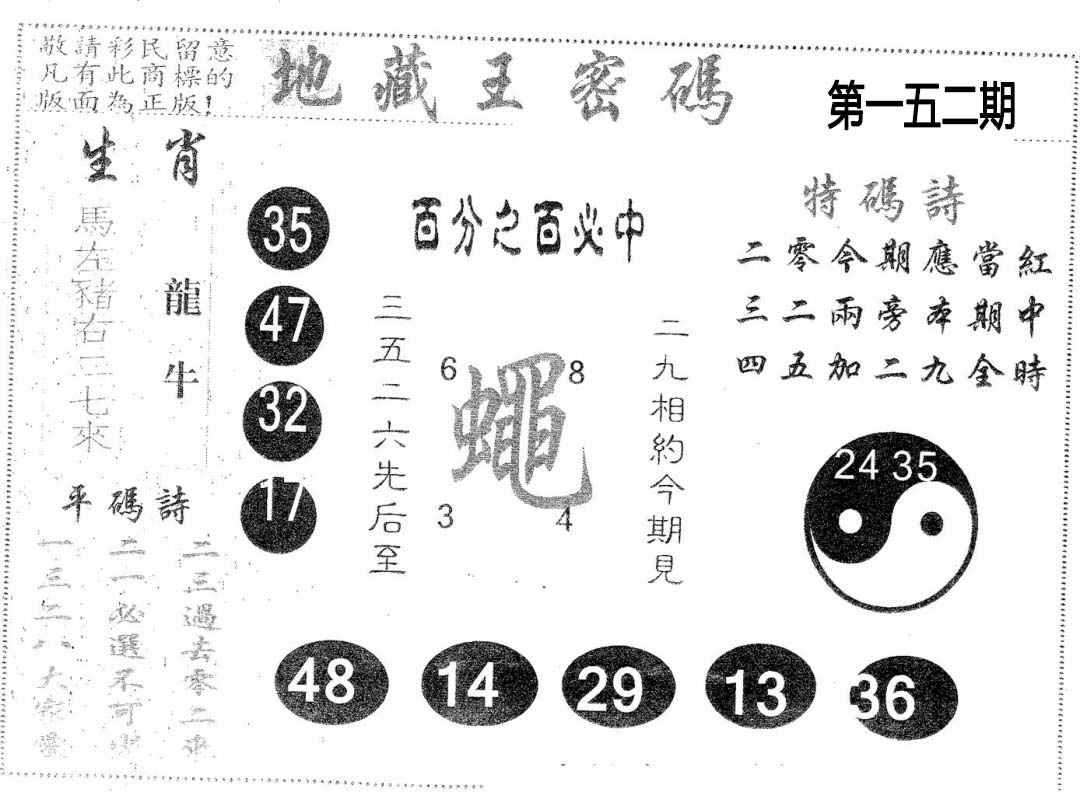 敬請彩民留意
凡有此商標的
版面為正版!
地藏王密碼
第一五二期
生肖
馬左豬右三七來
龍牛
平碼詩
二三過去零二來
二一必選不可
一三二八大家愛
35
47
32
17
百分之百必中
三五二六先后至
6
8
蠅
3
4
二九相約今期見
特碼詩
二零今期應當紅
三二兩旁本期中
四五加二九全時
24 35
48
14
29
13
36